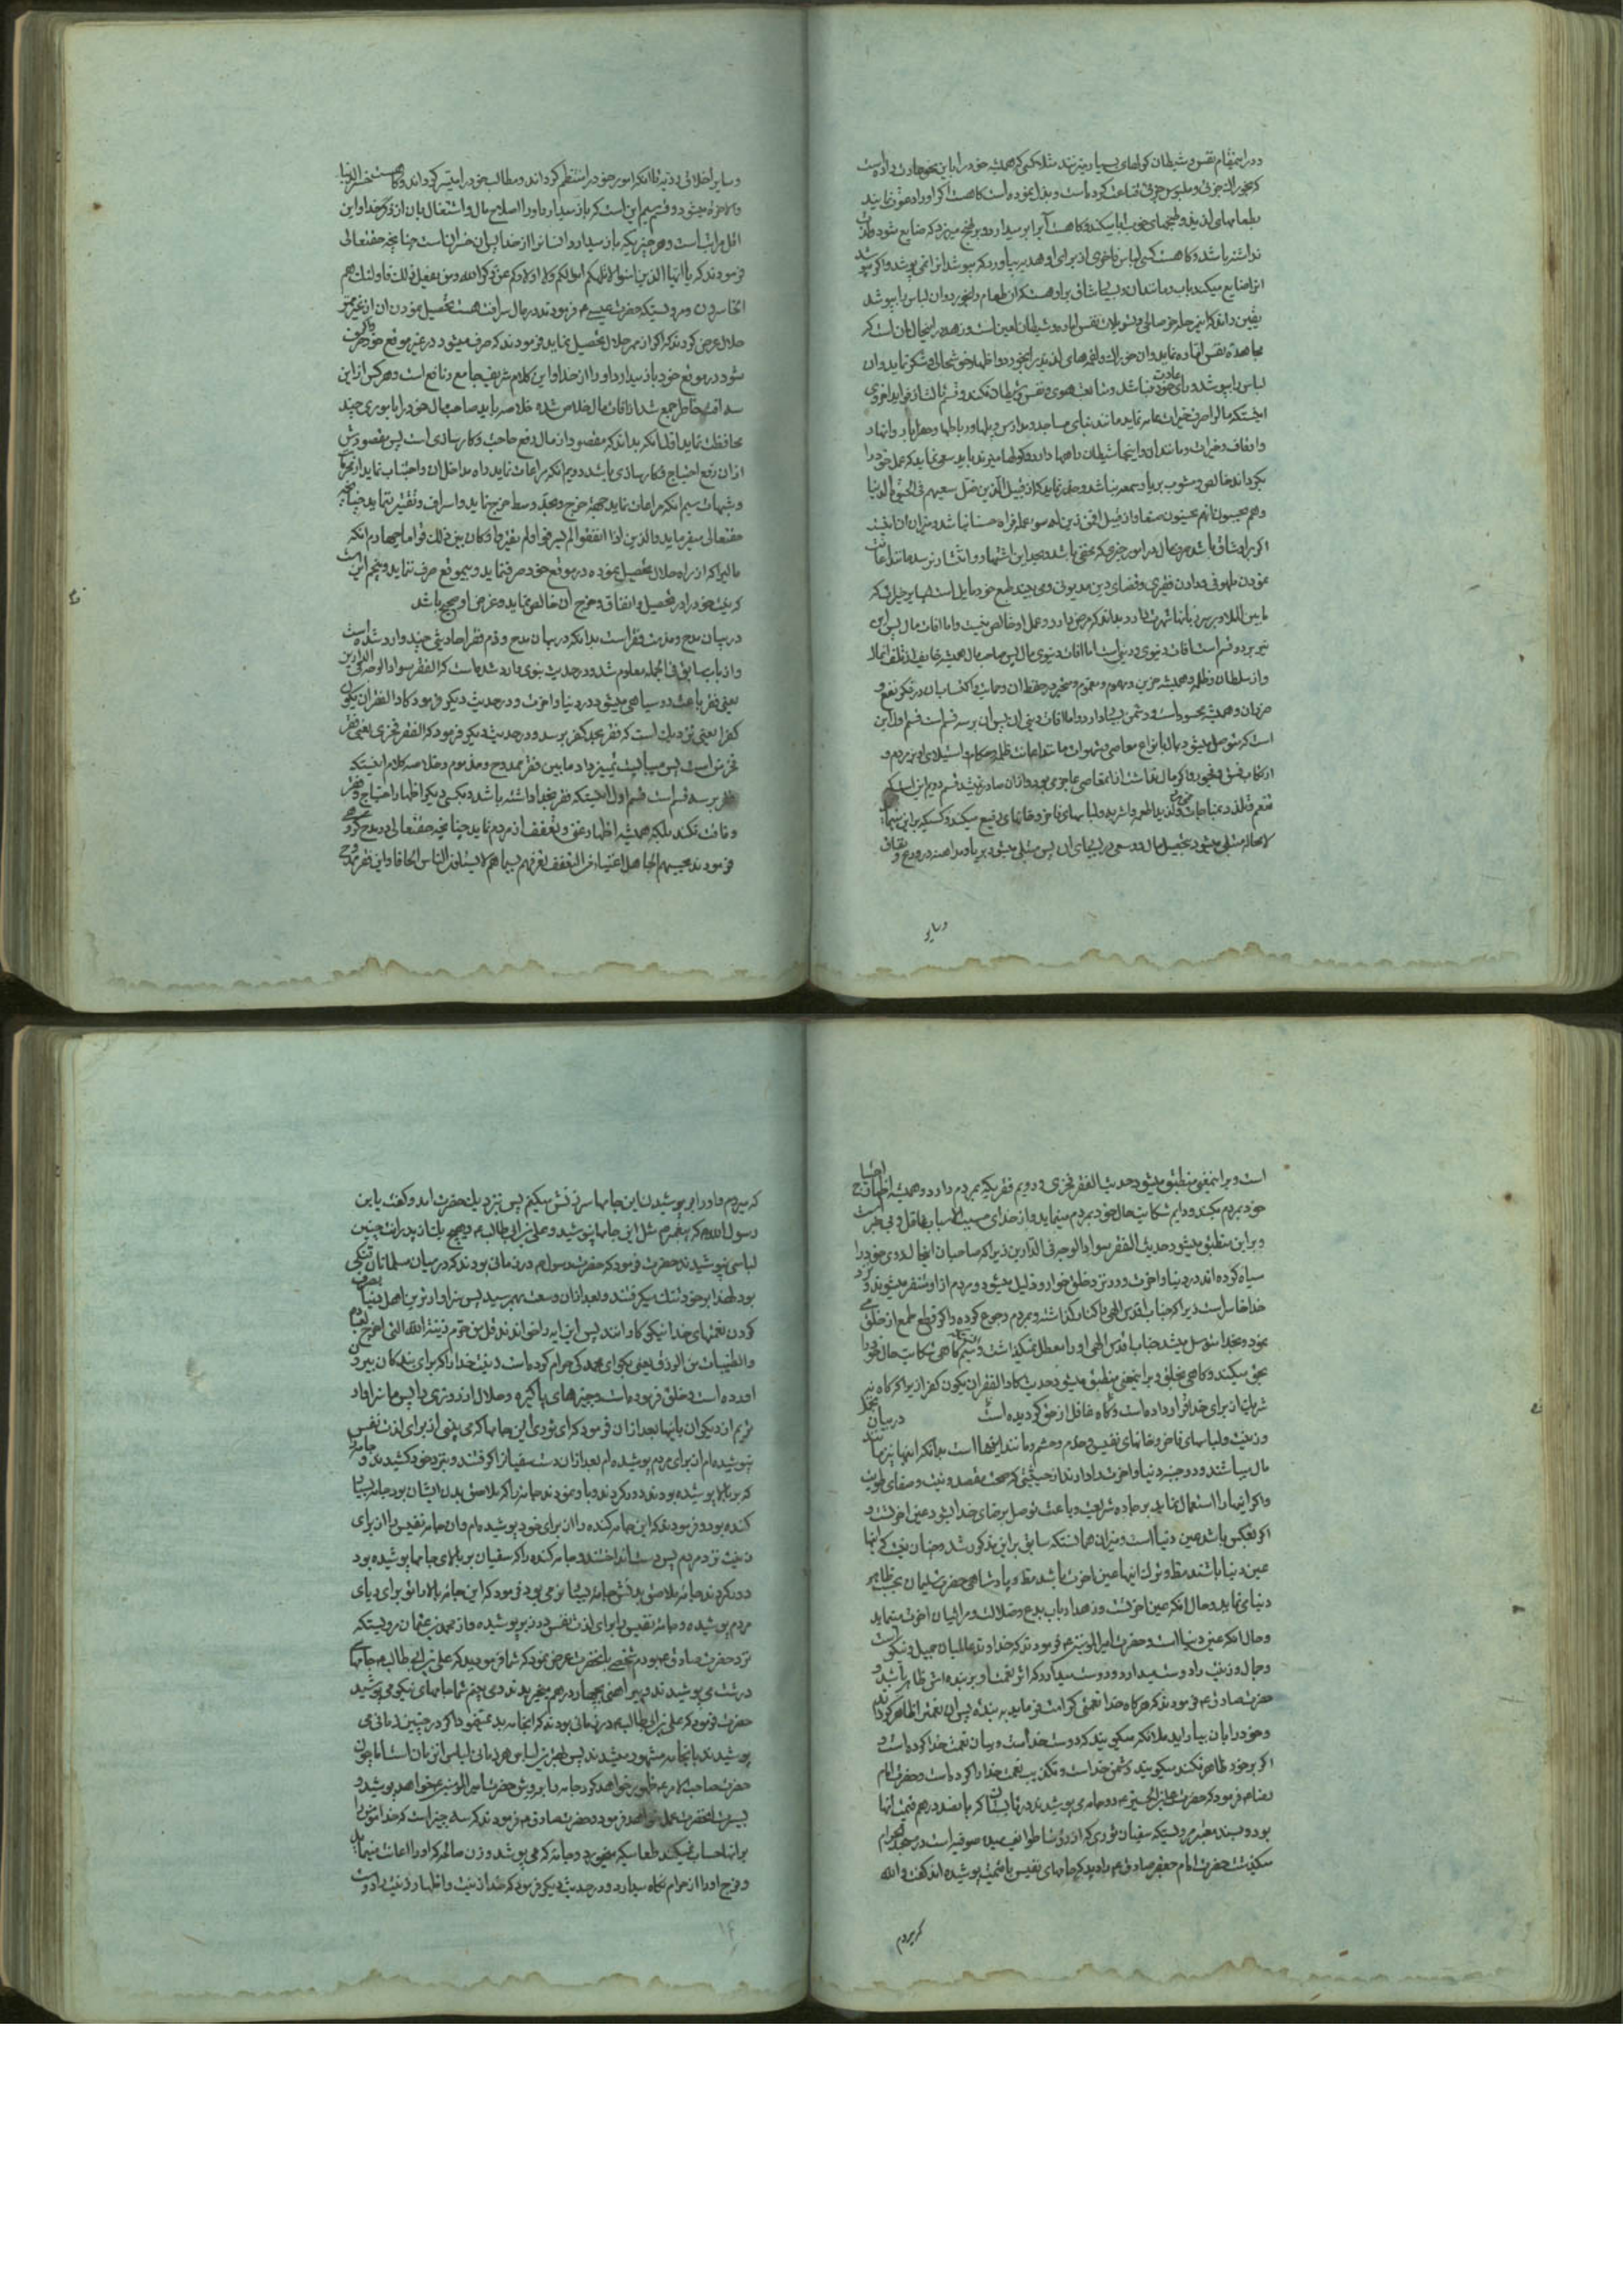 و در اینمقام نفس و شیطان کولهای بسیار میزنند مثلا کسی که همیشه خود را باین نحو عادت داده است
که بخوراک جزئی و ملبوس جزئی قناعت کرده است و بذل نموده است کاهست اکر او را دعوت نمایند
بطعامهای لذیذ و طبخهای خوب ابا میکند و کاهست آنرا بر میدارد و بر طبخ میریزد که ضایع شود و لذت
نداشته باشد و کاهست کسی لباس فاخری از برای او هدیه بیاورد که بپوشد انرا نمی پوشد و اکر بپوشد
انرا ضایع میکند باب و مانند ان و بسیار شاق بر او هست که ان طعام را بخورد و ان لباس را بپوشد
یقین داند که این حله خوش حالی و تسویلات نفس اماره و شیطان لعین است و زهد در اینحال ان است که
مجاهده نفس اماره نماید و ان خوراک و لقمهای لذیذ را بخورد و اظهار خوشحالی و شکر نماید و ان
لباس را بپوشد و رأی عادت خود نباشد و متابعت هوی و نفس و شیطان نکند و قسم ثالث از فواید اخروی
اینستکه مال را صرف خیرات عامه نماید مانند بنای مساجد و مدارس و پلها و رباطها و حفر ابار و انهار
و اوقاف و خیرات و مانند ان و اینجا شیطان راهها دارد و کولها میزند باید سعی نماید که عمل خود را
بکرداند خالص و مشوب بریا و سمعه نباشد و حذر نماید که از قبیل الذین ضل سعیهم فی الحیوة الدنیا
و هم یحسبون انهم یحسنون صنعا و از قبیل افمن زین له سوء عمله فراه حسنا نباشد و میزان ان اینست
اکر بر او شاق باشد صرف مال در امور خیری که مخفی باشد و بحد این اشتهار و انتشار نرسد مانند اعانت
نمودن ملهوفی و دادن فقیری و قضای دین مدیونی و می بیند طبع خود مایل است بسایر خیراتی که
مابین الملاء و بر سر زبانها شهرت دارد بداند که مرض دارد و عمل او خالص نیست و اما افات مال پس این
نیز بر دو قسم است افات دنیوی و دینی است اما افات دنیوی مال پس صاحب مال همیشه خایف از تلف انمال
و از سلطان و ظلمه و همیشه حزین و مهموم و مغموم و متحیر در حفظ ان و حمایت و اکتساب ان در فکر نفع و
ضرر ان و همیشه محسود است و دشمن بسیار دارد و اما افات دینی ان پس ان بر سه قسم است قسم اول این
است که متوصل میشود بمال بانواع معاصی و شهوات مانند اعانت ظلمه و حکام و استیلای او بر مردم و
ارتکاب فسق و فجور و اکر مال نداشت از انمعاصی عاجز می بود و از ان صادر نمیشد قسم دویم این است که
تنعم و تلذذ در مباحات خوردن و لذیذ اطعمه و اشربه و لباسهای فاخر و خانهای رفیع میکند و کسیکه بر این
لا محاله مبتلی میشود بتحصیل مال و سعی در پیهای ان پس مبتلی میشود بریا و مداهنه و دروغ و نفاق
و سایر
و سایر اخلاق رذیه تا انکه امور خود را منتظم کرداند و مطالب خود را میسر کرداند و کاهست خسر الدنیا
والاخرة میشود و قسم سیم این است که باز میدارد او را اصلاح مال و اشتغال بان از ذکر خدا و این
اقل مراتب است و هر چیزیکه باز میدارد انسانرا از خدا پس ان خسران است چنانچه حقتعالی
فرمودند که یا ایها الذین امنوا لا تلهکم اموالکم ولا اولادکم عن ذکر الله ومن یفعل ذلک فاولئک هم
الخاسرون و مرویستکه حضرت عیسی ع فرمودند در مال سه آفت هست تحصیل نمودن ان از غیر ممر
حلال عرض کردند که اکر از ممر حلال تحصیل نماید فرمودند که صرف میشود در غیر موقع خود و اکر صرف
شود در موقع خود باز میدارد او را از خدا و این کلام شریف جامع و نافع است و هر کس از این
سه افت خاطر جمع شد از افات مال خلاص شده خلاصه باید صاحب مال خود را باموری چند
محافظت نماید اول انکه بداند که مقصود از مال رفع حاجت و کار سازی است پس مقصودش
از ان رفع احتیاج و کار سازی باشد دویم انکه مراعات نماید راه مداخل ان و اجتناب نماید از محرمات
و شبهات سیم انکه مراعات نماید جهت خرج و بحد وسط خرج نماید و اسراف و تقتیر ننماید چنانچه
حقتعالی میفرماید والذین اذا انفقوا لم یسرفوا ولم یقتروا وکان بین ذلک قواما چهارم انکه
مالیرا که از راه حلال تحصیل نموده در موقع خود صرف نماید و بیموقع صرف ننماید و پنجم این است
که نیت خود را در تحصیل و انفاق و خرج ان خالص نماید و غرض او صحیح باشد
در بیان مدح و مذمت فقر است بدانکه در بیان مدح و ذم فقر احادیثی چند وارد شده است
و از باب سابق فی الجمله معلوم شد و در حدیث نبوی وارد شده است که الفقر سواد الوجه فی الدارین
یعنی فقر باعث رو سیاهی میشود در دنیا و اخرت و در حدیث دیکر فرمود کاد الفقر ان یکون
کفرا یعنی نزدیک است که فقر بحد کفر برسد و در حدیث دیکر فرمود که الفقر فخری یعنی فقر
فخر من است پس میبایست تمییز داد مابین فقر ممدوح و مذموم و خلاصه کلام اینستکه
فقر بر سه قسم است قسم اول اینستکه فقر بخدا داشته باشد و بکسی دیکر اظهار احتیاج و فقر
و فاقت نکند بلکه همیشه اظهار غنی و تعفف از مردم نماید چنانچه حقتعالی در مدح کروهی
فرمودند یحسبهم الجاهل اغنیاء من التعفف تعرفهم بسیماهم لا یسئلون الناس الحافا و این فقر ممدوح
است و بر اینمعنی منطبق میشود حدیث الفقر فخری و دویم فقریکه بمردم دارد و همیشه اظهار احتیاج
خود بمردم میکند و دایم شکایت حال خود بمردم مینماید و از خدای مسبب الاسباب غافل و بی خبر است
و بر این منطبق میشود حدیث الفقر سواد الوجه فی الدارین زیرا که صاحبان اینحال روی خود را
سیاه کرده اند در دنیا و اخرت و در نزد خلق خوار و ذلیل میشود و مردم از او متنفر میشوند و نزد
خدا خاسر است زیرا که جناب اقدس الهی را کنار کذاشته و بمردم رجوع کرده و اکر قطع طمع از خلق
نموده و بخدا متوسل میشد جناب اقدس الهی او را معطل نمیکذاشت و سیم انستکه کاهی شکایت حال خود را
بحق میکند و کاهی بخلق و بر اینمعنی منطبق میشود حدیث کاد الفقر ان یکون کفرا زیرا که کاه نیز
شریک از برای خدا قرار داده است و کاه غافل از حق کردیده است در بیان تجمل
و زینت و لباسهای فاخر و خانهای نفیس و خدم و حشم و مانند اینها است بدانکه اینها نیز مانند
مال میباشند و دو جنبه دنیا و اخرت را دارند از حیثیتی که صحت مقصد و نیت و صفای طویت
و اکر اینها را استعمال نماید بر جاده شریعت و باعث توصل برضای خدا شود عین اخرتست و
اکر بعکس باشد عین دنیا است و میزان همانستکه سابق بر این مذکور شد و چنان نیست که اینها
عین دنیا باشند مطلقا و ترک اینها عین اخرت باشد مطلقا و پادشاهی حضرت سلیمان بحسب ظاهر
دنیا می نماید و حال انکه عین اخرتست و زهد ارباب بدع و ضلالت و مرائیان اخرت مینماید
و حال انکه عین دنیا است و حضرت امیر المومنین ع فرمودند که خداوند عالمیان جمیل و نیکو است
و جمال و زینت را دوست میدارد و دوست میدارد که اثر نعمت او بر بنده اش ظاهر باشد و
حضرت صادق ع فرمودند که هر کاه خدا نعمتی کرامت فرماید به بنده پس ان نعمت را ظاهر کرداند
و خود را بان بیاراید ملائکه میکویند که دوست خداست و بیان نعمت خدا کرده است و
اکر بر خود ظاهر نکند میکویند دشمن خداست و تکذیب نعمت خدا را کرده است و حضرت امام
رضا ع فرمود که حضرت علی بن الحسین ع دو جامه می پوشیدند در تابستان که پانصد درهم قیمت انها
بود و بسند معتبر مرویستکه سفیان ثوری که از رؤسا طوایف صوفیه است در مسجد الحرام
میکذشت حضرت امام جعفر صادق ع را دید که جامهای نفیس با قیمت پوشیده اند کفت والله
که میروم
که میروم و او را بر پوشیدن این جامها سرزنش میکنم پس نزدیک حضرت امد و کفت یابن
رسول الله که پیغمبر ص مثل این جامها نپوشید و علی بن ابی طالب ع و هیچیک از پدرانت چنین
لباسی نپوشیدند حضرت فرمود که حضرت رسول ص در زمانی بودند که در میان مسلمانان تنکی
بود لهذا بر خود تنک میکرفتند و بعد از ان وسعت بهم رسید پس سزاوارترین اهل دنیا بصرف
کردن نعمتهای خدا نیکوکارانند پس این ایه را خواندند قل من حرم زینة الله التی اخرج لعباده
والطیبات من الرزق یعنی بکو ای محمد کی حرام کرده است زینت خدا را که برای بندکان بیرون
اورده است و خلق فرموده است و چیزهای پاکیزه و حلال از روزی را پس ما سزاوار
تریم از دیکران بانها بعد از ان فرمود که ای ثوری این جامها که می بینی از برای لذت نفس
نپوشیده ام از برای مردم پوشیده ام بعد از ان دست سفیان را کرفتند و بنزد خود کشیدند و جامه را
که بر بالا پوشیده بودند دور کردند و باو نمودند جامه را که ملاصق بدن ایشان بود جامه بسیار
کنده بود و فرمودند که این جامه کنده را از برای خود پوشیده ام و ان جامه نفیس را از برای
زینت نزد مردم پس دست انداختند و جامه کنده را که سفیان بر بالای جامها پوشیده بود
دور کردند جامه ملاصق بدنش جامه بسیار نرمی بود فرمود که این جامه بالا را تو برای ریای
مردم پوشیده و جامه نفیس را برای لذت نفس در زیر پوشیده و از محمد بن عثمان مرویستکه
نزد حضرت صادق ع بودم شخصی بانحضرت عرض نمود که شما فرمودید که علی بن ابی طالب ع جامهای
درشت می پوشیدند و پیراهنی بچهار درهم میخریدند و می بینم شما جامهای نیکو می پوشید
حضرت فرمود که علی بن ابی طالب ع در زمانی بودند که انجامه بد نمینمود اکر در چنین زمانی می
پوشیدند بانجامه مشهور میشدند پس بهترین لباس هر زمانی لباس انزمان است اما چون
حضرت صاحب الامر ع ظهور خواهد کرد جامه را بروش حضرت امیر المومنین ع خواهد پوشید و
بسیرت انحضرت عمل خواهد فرمود و حضرت صادق ع فرمودند که سه چیز است که خدا مؤمن را
بر انها حساب نمیکند طعامیکه میخورد و جامه که می پوشد و زن صالحه که او را اعانت مینماید
و فرج او را از حرام نکاه میدارد و در حدیث دیکر فرمود که خدا زینت و اظهار زینت را دوست